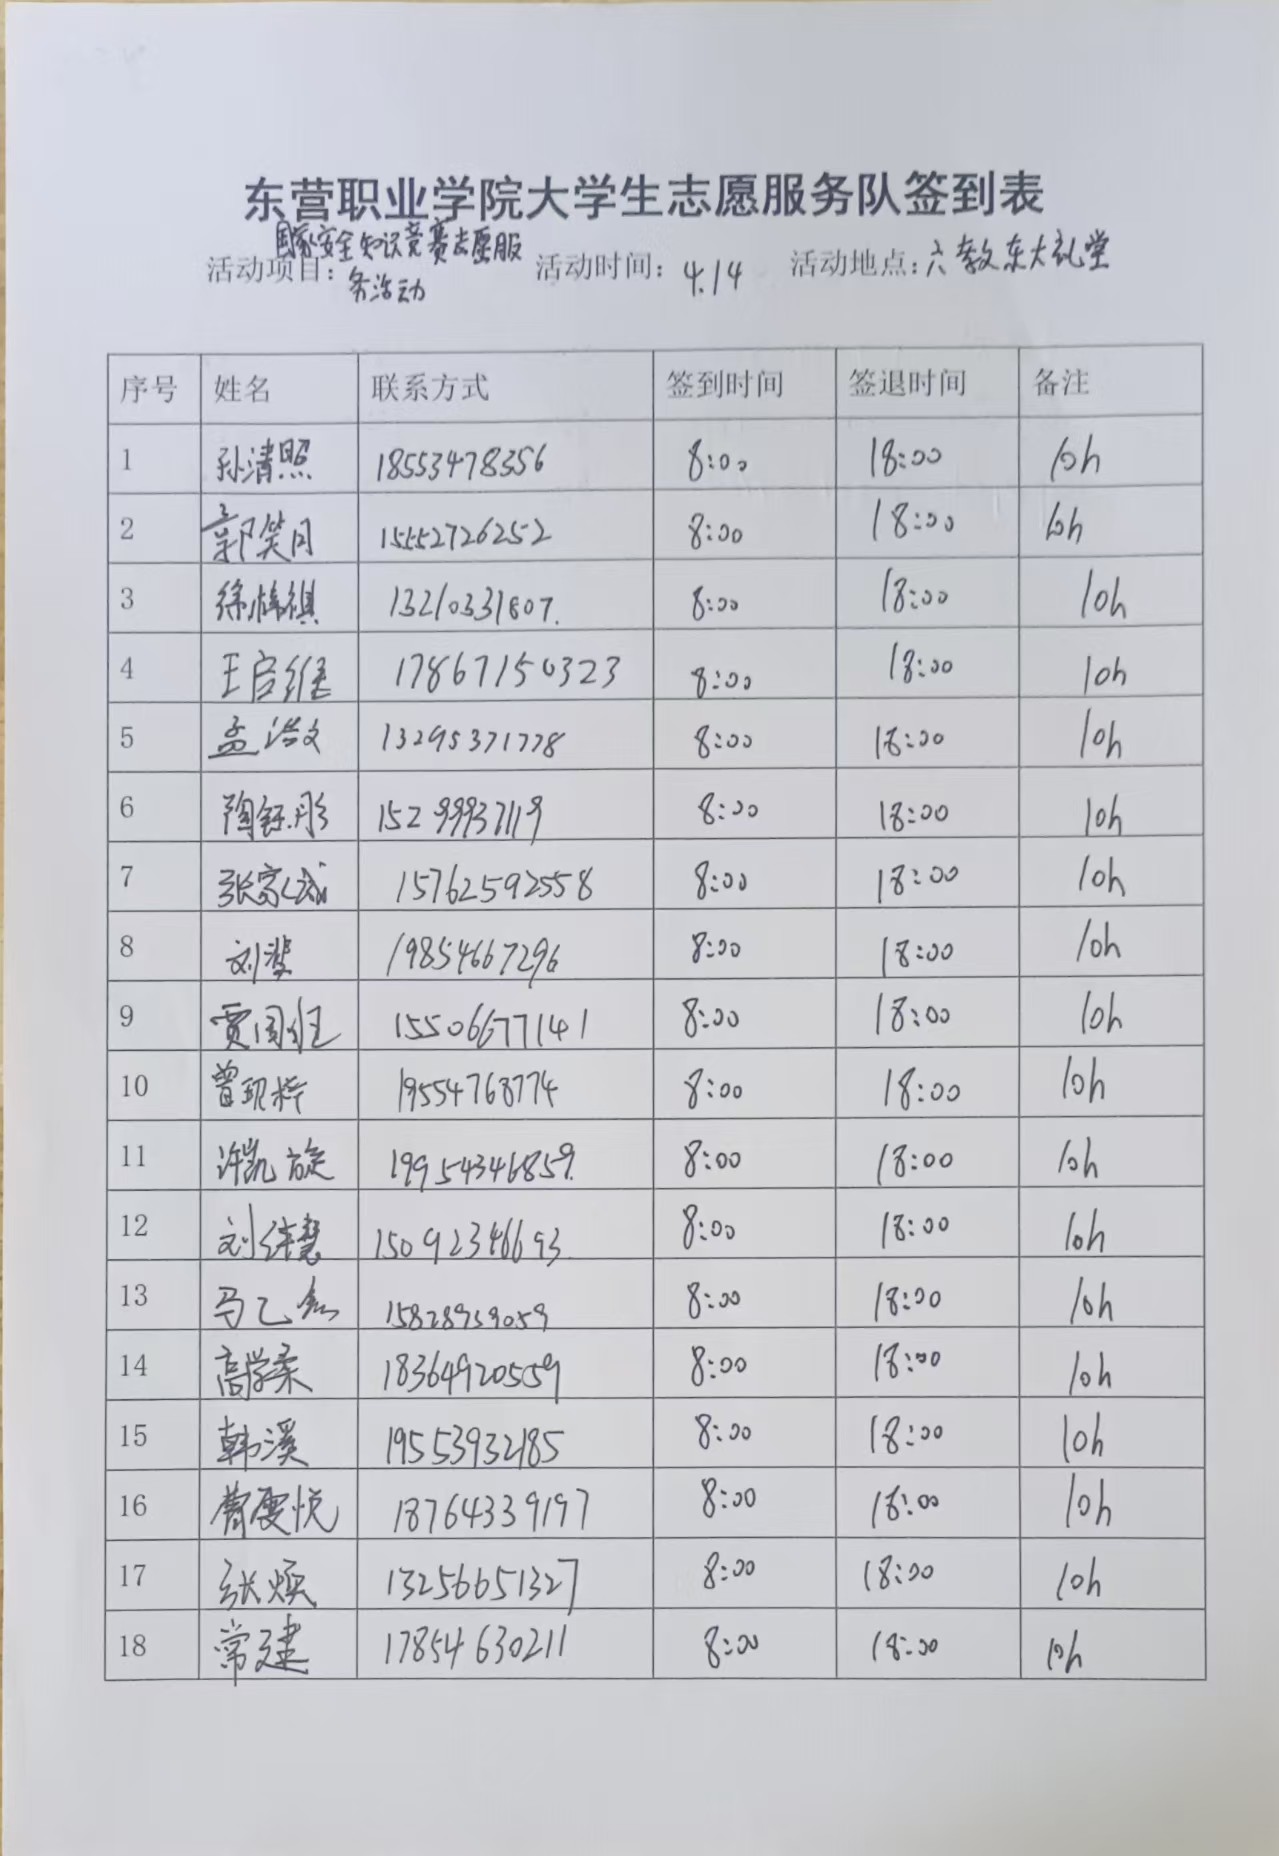 东营职业学院大学生志愿服务队签到表
活动项目：国家安全知识竞赛志愿服务活动 活动时间：4.14 活动地点：六教东大礼堂
序号 姓名 联系方式 签到时间 签退时间 备注
1 孙清照 18553478356 8:00 18:00 10h
2 郭笑月 15552726252 8:00 18:00 10h
3 徐梓祺 13210331807. 8:00 18:00 10h
4 王启继 17867150323 8:00 18:00 10h
5 孟浩文 13295371778 8:00 18:00 10h
6 陶钰彤 15299937119 8:00 18:00 10h
7 张家诚 15762592558 8:00 18:00 10h
8 刘 19854667296 8:00 18:00 10h
9 贾国 15506677141 8:00 18:00 10h
10 曾现梓 19554768774 8:00 18:00 10h
11 许凯旋 19954346859. 8:00 18:00 10h
12 刘佳慧 15092346693 8:00 18:00 10h
13 马乙 15828939059 8:00 18:00 10h
14 高学柔 18364920559 8:00 18:00 10h
15 韩溪 19553932185 8:00 18:00 10h
16 雯悦 18764339197 8:00 18:00 10h
17 张焕 13256651327 8:00 18:00 10h
18 常建 17854630211 8:00 18:00 10h